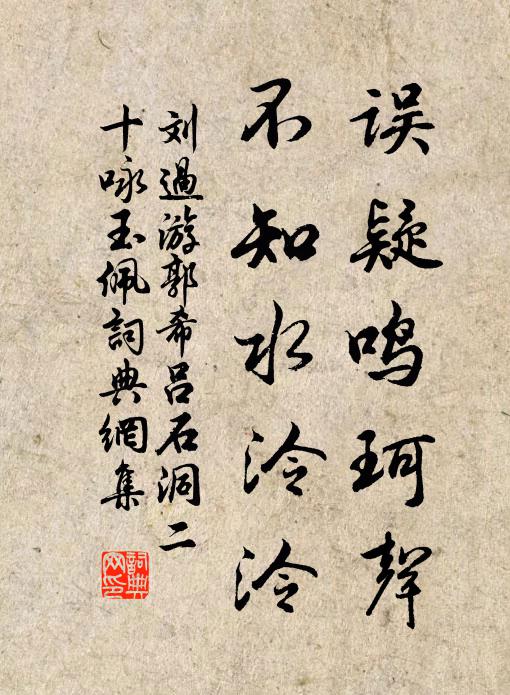 误疑鸣珂聲
不知水泠泠
刘過游郭希吕石洞二
十咏玉佩詞典網集
詞典
网印